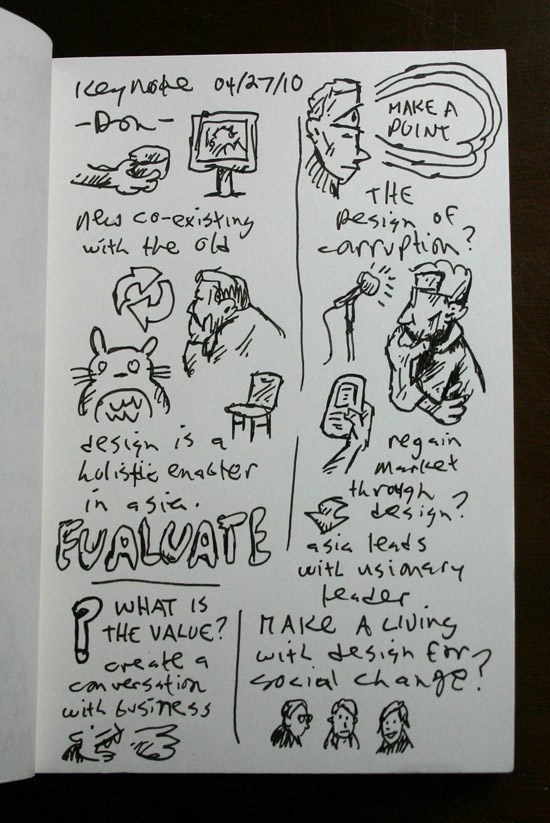 Keynote 04/27/10
-Don-
new co-existing
with the old
design is a
holistic enabter
in asia.
EVALUATE
? WHAT IS
THE VALUE?
create a
conversation
with business
MAKE A
POINT
THE
Design of
corruption?
regain
market
through
design?
asia leads
with visionary
leader
MAKE A Living
with design for
social change?